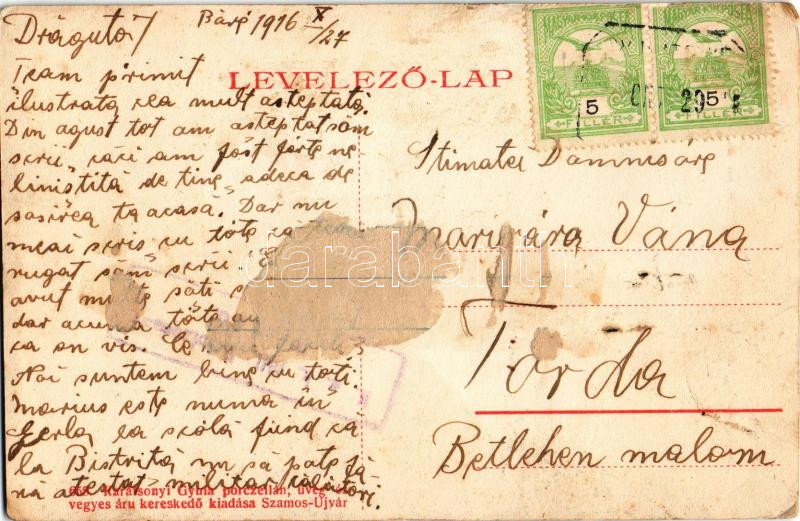 Drăguta!
Báré 1916 X/27
LEVELEZŐ-LAP
MAGYAR KIR. POSTA
5
FILLÉR
5
FILLÉR
Team primit
ilustrata cea mult asteptată.
Din agust tot am asteptat săm
scrii, căci am fost forte ne
linistită de tine, adeca de
sosirea ta acasă. Dar nu
meai scris cu tote că
rugat sămi scrii.
avut multe săti s
dar acuma tóte au
ca on vis. Ce
Noi suntem bine cu toti.
Marius este numa în
Gerla la scólă fiind că
la Bistrita nu să pote fă
ră atestat militar călători.
Stimatei Domnisóre
Marișára Vána
Torda
Betlehen malom
Karátsonyi Gyula porczellán, üveg
vegyes áru kereskedő kiadása Szamos-Újvár
darabanth